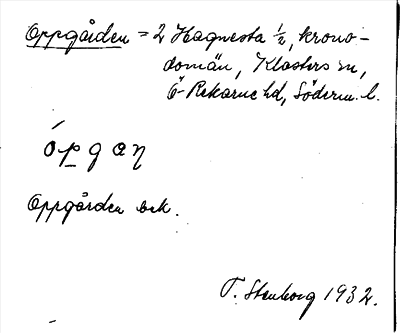 Oppgården = 2 Hagnesta ½, krono-
domän, Klosters sn,
Ö Rekarne hd, Söderm. l.
ópgaŋ
Oppgården ek.
T. Stenborg 1932.